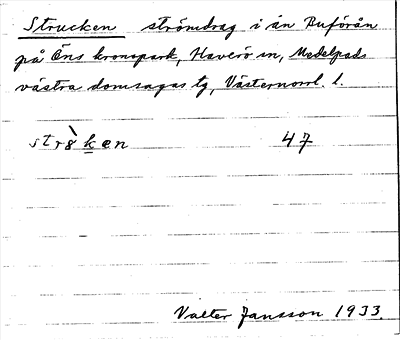 Strucken strömdrag i ån Buförån
på Öns kronopark, Haverö sn, Medelpads
västra domsagas tg, Västernorrl. l.
strὸ̀ken 47
Valter Jansson 1933.